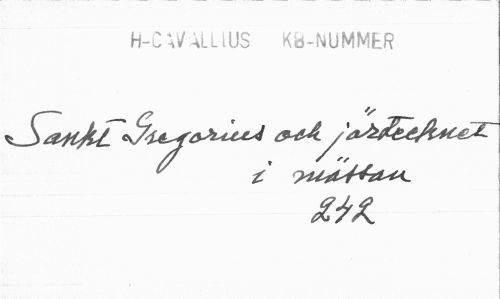 H-CAVALLIUS KB-NUMMER
Sankt Gregorius och järtecknet
i mässan
242